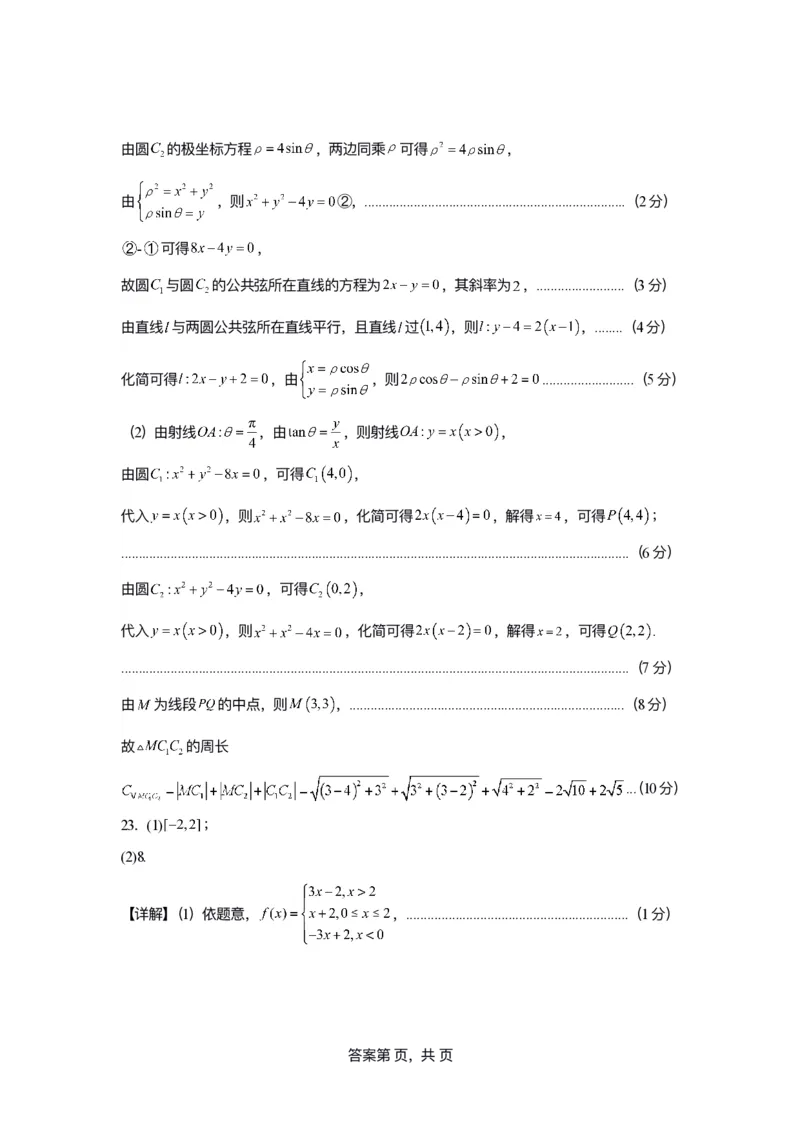 由圆C₂的极坐标方程ρ=4sinθ，两边同乘ρ可得ρ²=4ρsinθ，
由{ρ²=x²+y² ρsinθ=y，则x²+y²-4y=0②，..........(2分)
②-①可得8x-4y=0，
故圆C₁与圆C₂的公共弦所在直线的方程为2x-y=0，其斜率为2，..........(3分)
由直线l与两圆公共弦所在直线平行，且直线l过(1,4)，则l:y-4=2(x-1)，........(4分)
化简可得l:2x-y+2=0，由{x=ρcosθ y=ρsinθ，则2ρcosθ-ρsinθ+2=0..........(5分)
(2)由射线OA:θ=π/4，由tanθ=y/x，则射线OA:y=x(x>0)，
由圆C₁:x²+y²-8x=0，可得C₁(4,0)，
代入y=x(x>0)，则x²+x²-8x=0，化简可得2x(x-4)=0，解得x=4，可得P(4,4)；
..........(6分)
由圆C₂:x²+y²-4y=0，可得C₂(0,2)，
代入y=x(x>0)，则x²+x²-4x=0，化简可得2x(x-2)=0，解得x=2，可得Q(2,2).
..........(7分)
由M为线段PQ的中点，则M(3,3)，..........(8分)
故△MC₁C₂的周长
C▽MC₁C₂=|MC₁|+|MC₂|+|C₁C₂|=√((3-4)²+3²)+√(3²+(3-2)²)+√(4²+2²)=2√10+2√5...(10分)
23. (1)[-2,2]；
(2)8.
【详解】(1)依题意，f(x)={3x-2,x>2 x+2,0≤x≤2 -3x+2,x<0，..........(1分)
答案第 页，共 页